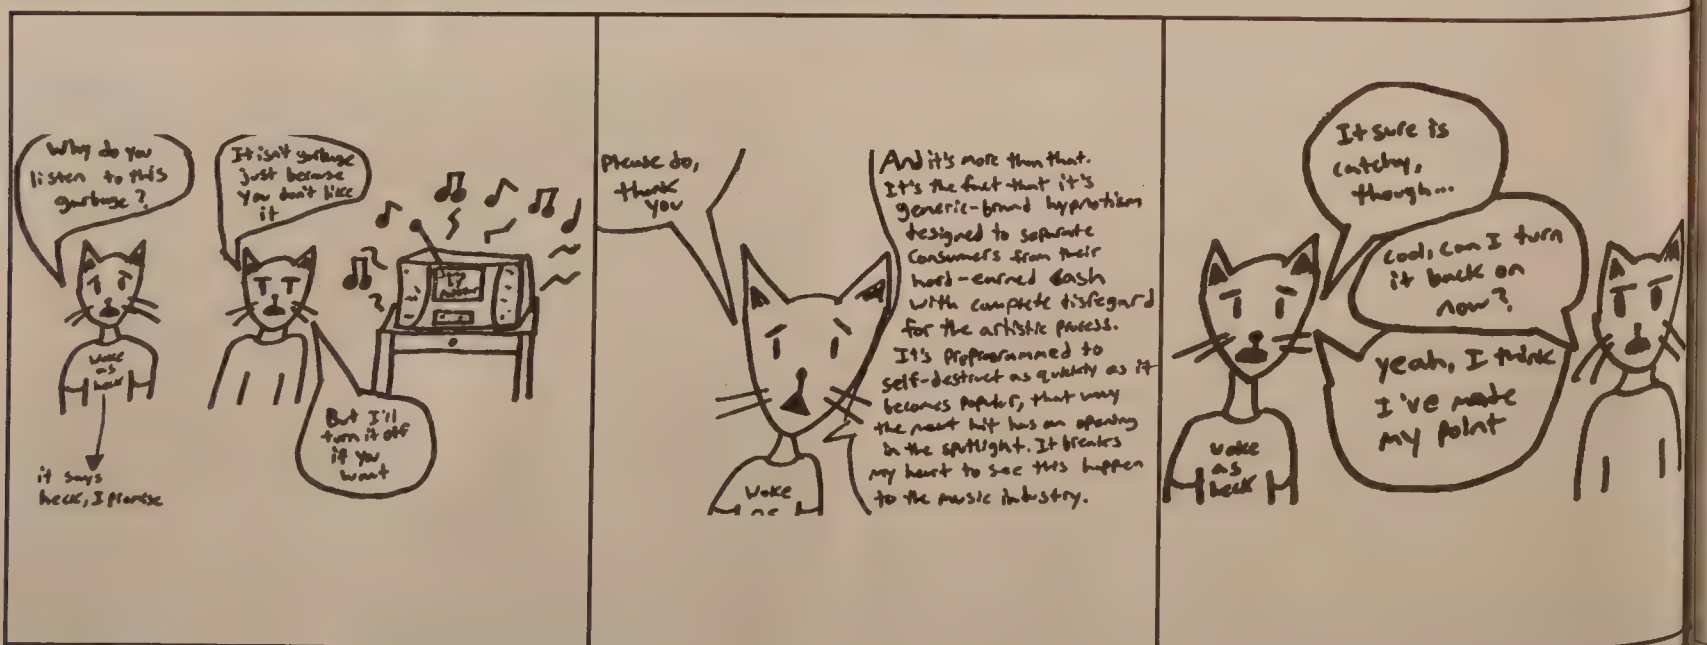 Why do you
listen to this
garbage?
It isn't garbage
just because
you don't like
it
But I'll
turn it off
if you
want
woke
as
heck
it says
heck, I promise
Please do,
thank
you
And it's more than that.
It's the fact that it's
generic-brand hypnotism
designed to separate
consumers from their
hard-earned cash
with complete disregard
for the artistic process.
It's preprogrammed to
self-destruct as quickly as it
becomes popular, that way
the next hit has an opening
in the spotlight. It breaks
my heart to see this happen
to the music industry.
Woke
as
It sure is
catchy,
though...
cool, can I turn
it back on
now?
yeah, I think
I've made
my point
woke
as
heck